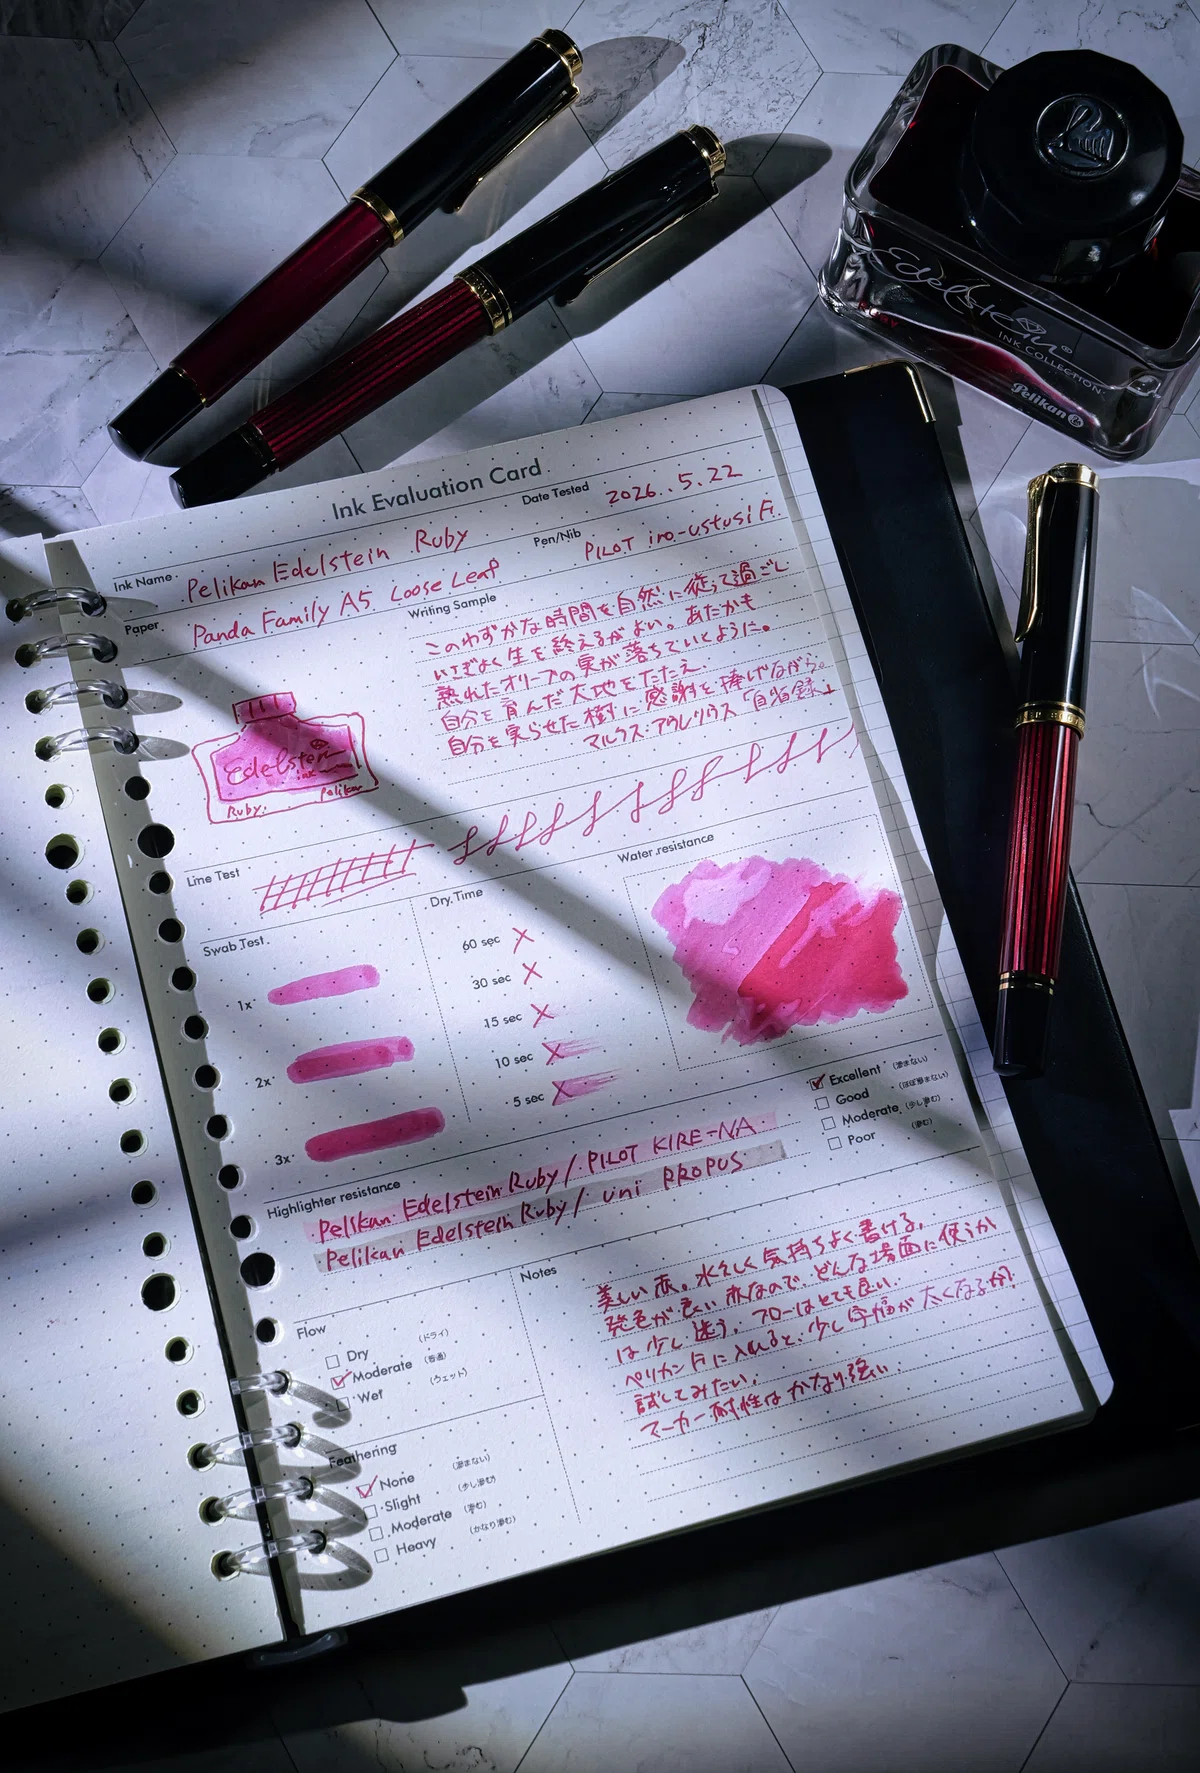 Edelstein
RUBY
INK COLLECTION
Pelikan
Ink Evaluation Card
Date Tested 2026..5.22
Ink Name Pelikan Edelstein Ruby
Pen/Nib PILOT iro-ustusi F.
Paper Panda Family A5 Loose Leaf
Writing Sample
このわずかな時間を自然に従って過ごし
いさぎよく生を終えるがよい。あたかも
熟れたオリーブの実が落ちていくように。
自分を育んだ大地をたたえ、
自分を実らせた樹に感謝を捧げながら。
マルクス・アウレリウス「自省録」
Edelstein
ink
Ruby.
Pelikan
Line Test
Swab Test
1x
2x
3x
Dry Time
60 sec
30 sec
15 sec
10 sec
5 sec
Water resistance
Excellent (滲まない)
Good (ほぼ滲まない)
Moderate (少し滲む)
Poor (滲む)
Highlighter resistance
Pelikan Edelstein Ruby / PILOT KIRE-NA
Pelikan Edelstein Ruby / uni PROPUS
Flow
Dry (ドライ)
Moderate (普通)
Wet (ウェット)
Feathering
None (滲まない)
Slight (少し滲む)
Moderate (滲む)
Heavy (かなり滲む)
Notes
美しい赤。水々しく気持ちよく書ける。
発色が良い赤なので、どんな場面に使うか
は少し迷う。フローはとても良い。
ペリカンFに入れると、少し字幅が太くなるか?
試してみたい。
マーカー耐性はかなり強い。